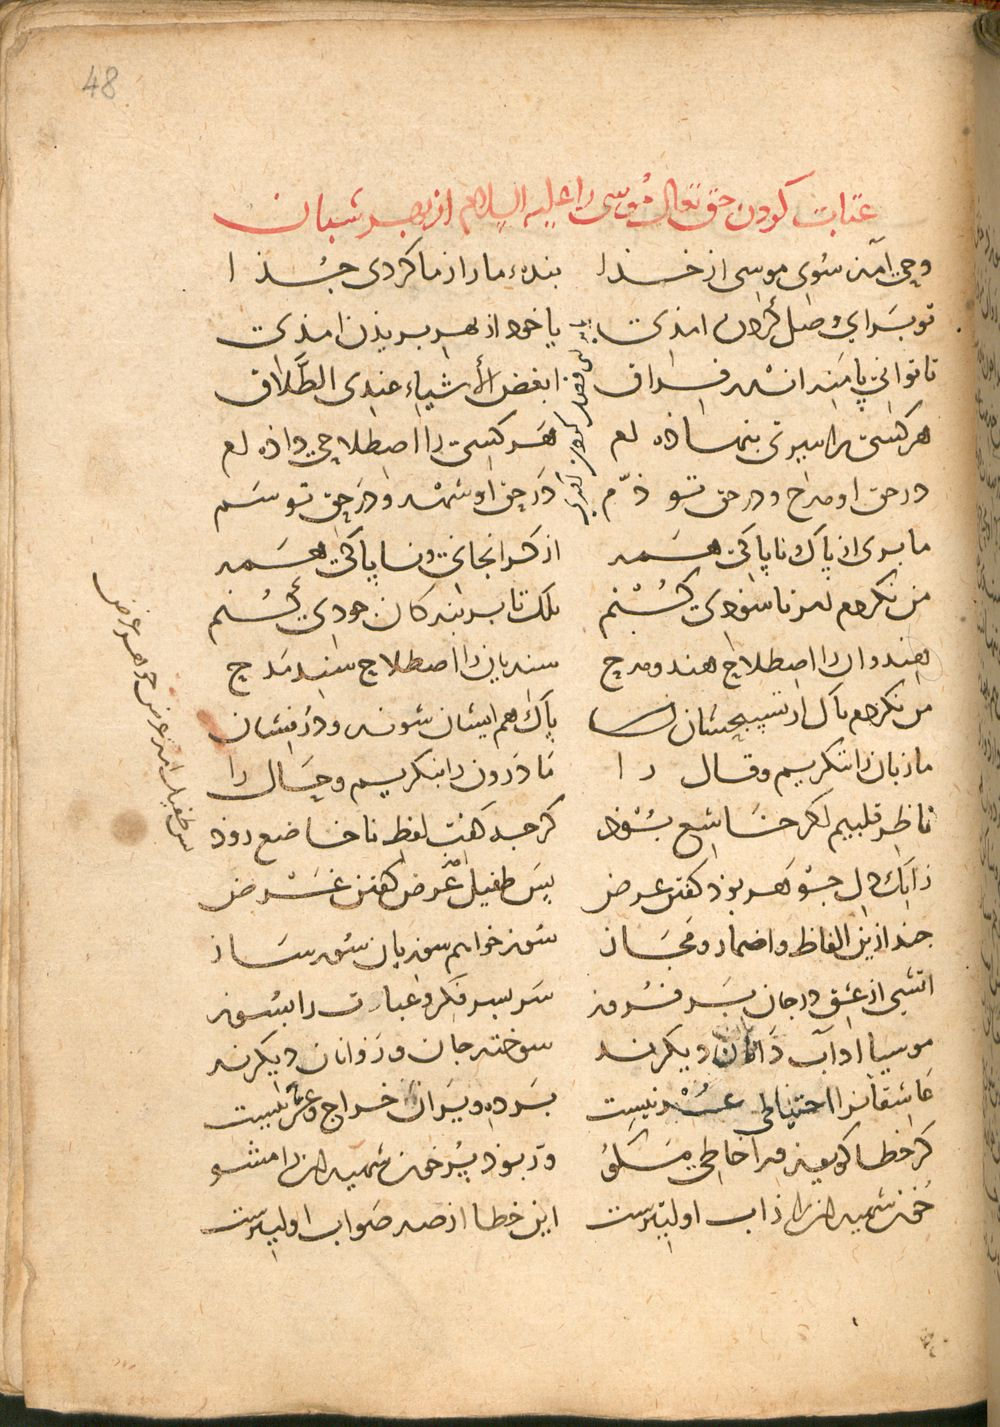 48
عتاب کردن حق تعالی موسی را علیه السلام از بهر شبان
وحی آمذ سوی موسی از خذا بنده‌ء مارا ز ما کردی جذا
تو برای وصل کردن امذی یا خود از بهر بریذن امذی
تا توانی پا منه اندر فراق ابغض الأشیاء عندی الطَّلاق
هر کسی را سیرتی بنهاذه ام هر کسی را اصطلاحی داذه ام
در حق او مدح و در حق تو ذم در حق او شهد و در حق تو سم
ما بری از پاک و ناپاکی همه از کرانجانی و ناپاکی همه
من نکردم امر تا سوذی کنم بلک تا بر بندکان جودی کنم
هندوان را اصطلاح هند مدح سندیان را اصطلاح سند مدح
من نکردم پاک از تسبیحشان پاک هم ایشان شوند و درفشان
ما زبان را ننکریم و قال را ما درون را بنکریم و حال را
ناظر قلبیم اکر خاشع بوذ کرچه کفت لفظ ناخاضع روذ
زانک دل جوهر بوذ کفتن عرض پس طفیل آمذ عرض کفتن غرض
چند ازین الفاظ و اضمار و مجاز سوز خواهم سوز با آن سوز ساز
اتشی از عشق در جان بر فروز سر بسر فکر و عبارت را بسوز
موسیا اداب دانان دیکرند سوخته جان و روانان دیکرند
عاشقانرا
بر ده ویران خراج و عشر نیست
کر خطا کویذ ورا خاطی مکو ور بوذ پر خون شهید او را مشو
خون شهیدان را ز اب اولیترست این خطا از صد صواب اولیترست